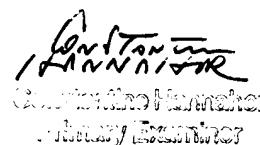 CONSTANTINE
HANNAHER
Constantine Hannaher
Primary Examiner